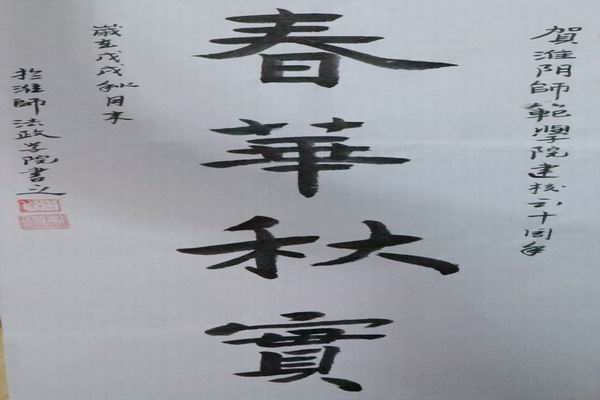 賀淮阴師範學院建校六十周年
春華秋實
歲在戊戌秋月末
於淮師法政学院書之